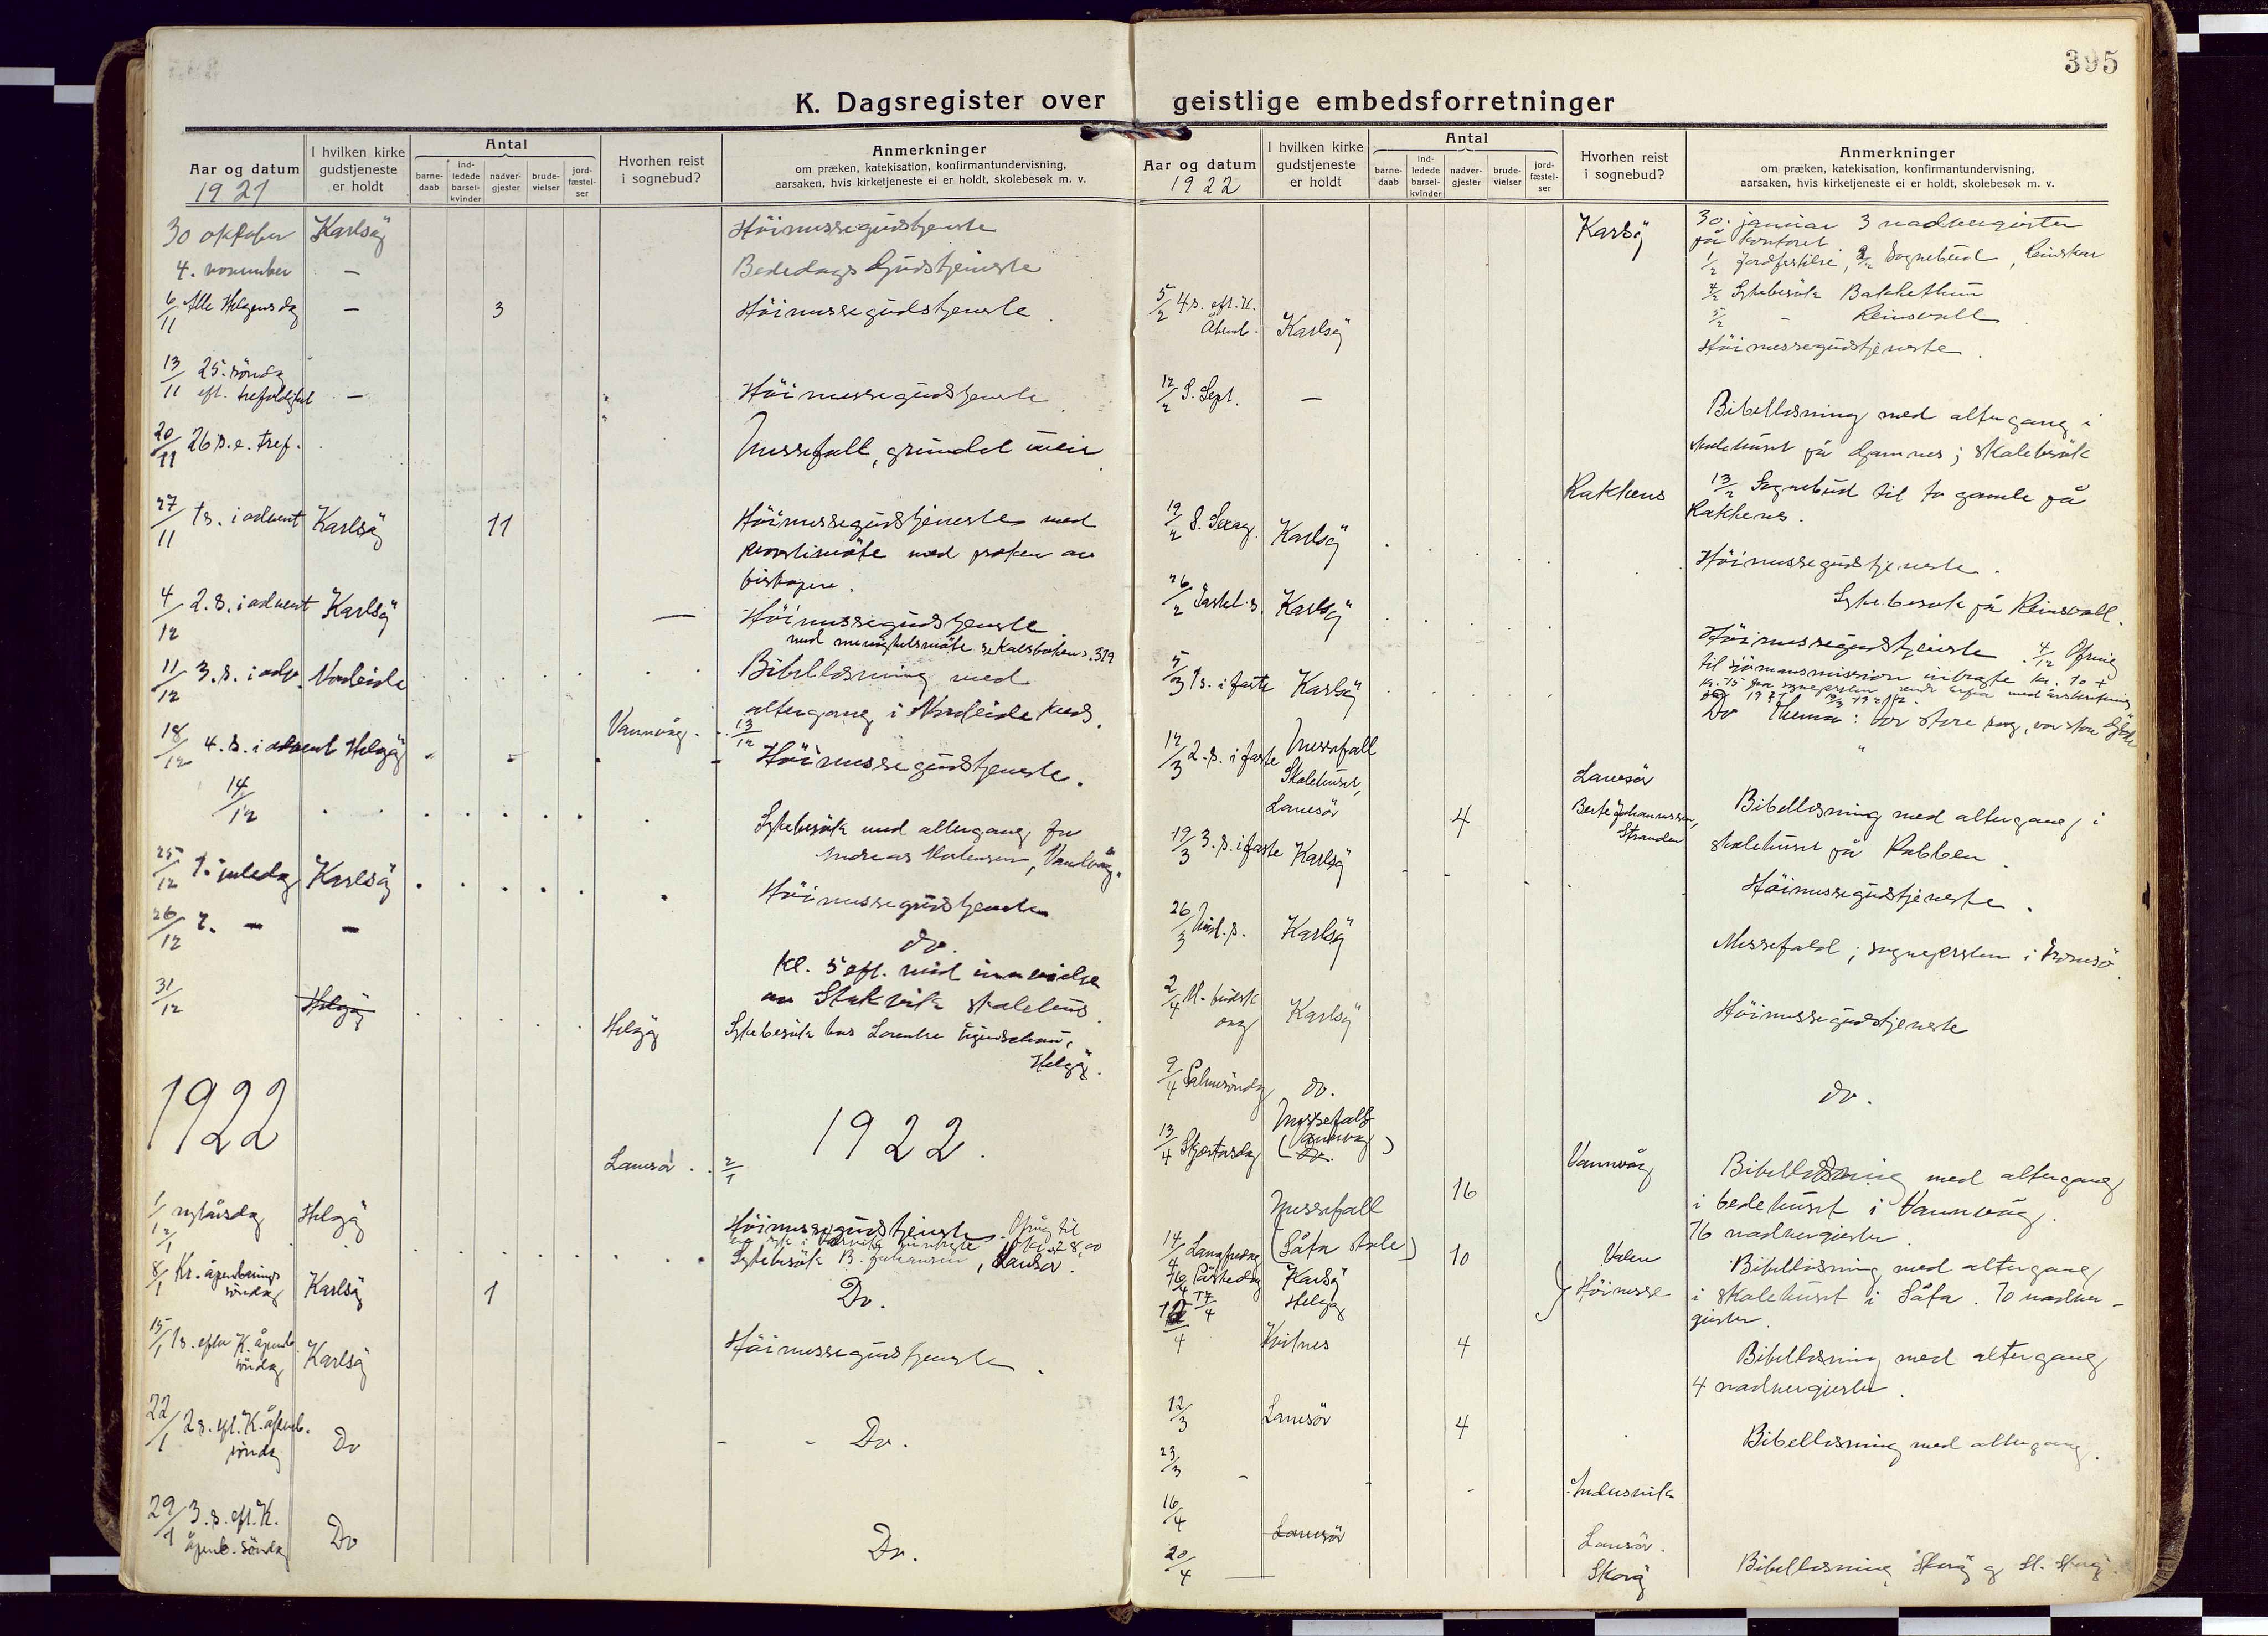 395
K. Dagsregister over geistlige embedsforretninger
Aar og datum
1921
I hvilken kirke
gudstjeneste
er holdt
Antal
barne-
daab
ind-
ledede
barsel-
kvinder
nadver-
gjester
brude-
vielser
jord-
fæstel-
ser
Hvorhen reist
i sognebud?
Anmerkninger
om præken, katekisation, konfirmantundervisning,
aarsaken, hvis kirketjeneste ei er holdt, skolebesøk m. v.
30 oktober Karlsöy Höimessegudstjeneste
4. november — Bededags Gudstjeneste
6/11 Alle Helgensdag — 3 Höimessegudstjeneste
13/11 25. söndag
eft. trefoldighed — Höimessegudstjeneste
20/11 26 s. e. tref. Messefall, grundet uveir
27/11 1 s. i advent Karlsöy 11 Höimessegudstjeneste med
med præken av
biskopen.
4/12 2. s. i advent Karlsöy — Höimessegudstjeneste
med menighetsmöte se Kaldsboken s. 319
11/12 3. s. i adv. Nordeide Bibellesning med
altergang i Nordeide
Vannvåg 13/12
18/12 4. s. i advent Helgöy Höimessegudstjeneste.
14/12 Sykebesök med altergang for
Andreas Mortensen, Vandvåg.
25/12 1. juledag Karlsöy Höimessegudstjeneste
26/12 2. — — do.
Kl. 5 eft. mid innvielse
av Stakvik skolehus.
31/12 Helgöy Helgöy Sykebesök hos
Helgöy.
1922 1922.
Lanesör 2/1
1/1 nytårsdag Helgöy Höimessegudstjeneste. Ofring til
2/1 Sykebesök B. Johansen, Lanesör.
8/1 Kr. åpenbarings
söndag Karlsöy 1 Do.
15/1 1 s. efter K. åpenb.
söndag Karlsöy Höimessegudstjeneste.
22/1 2 s. eft. K. åpenb.
söndag Do - - Do.
29/1 3. s. eft. K.
åpenb. söndag Do Do.
Aar og datum
1922
I hvilken kirke
gudstjeneste
er holdt
Antal
barne-
daab
ind-
ledede
barsel-
kvinder
nadver-
gjester
brude-
vielser
jord-
fæstel-
ser
Hvorhen reist
i sognebud?
Anmerkninger
om præken, katekisation, konfirmantundervisning,
aarsaken, hvis kirketjeneste ei er holdt, skolebesøk m. v.
Karlsöy 30. januar 3 nadvergjester
på kontoret.
1/2 Jordfestelse, 2/2 Sognebud, Reinskar
4/2 Sykebesök Bakkehun
5/2 - Reinsvoll.
5/2 4 s. eft. K.
Åpenb. Karlsöy Höimessegudstjeneste.
12/2 S. Sept. — Bibellesning med altergang i
skolehuset på ; skolebesök
Rakkenes 13/2 Sognebud til to gamle på
Rakkenes.
19/2 S. Sexag. Karlsöy Höimessegudstjeneste.
Sykebesök på Reinsvoll.
26/2 Fastel. s. Karlsöy Höimessegudstjeneste. 4/12 Ofring
til sjömansmission inbragte kr. 10 +
5/3 1 s. i faste Karlsöy Do Thema: Vor store sorg, vor store glæde
12/3 2. s. i faste Messefall
Skolehuset,
Lanesör 4 Lanesör
Berte Johannessen,
Stranden Bibellesning med altergang i
skolehuset på Rabben.
19/3 3. s. i faste Karlsöy Höimessegudstjeneste.
26/3 Mid. s. Karlsöy Messefald; sognepresten i Tromsö.
2/4 M. budsk
dag Karlsöy Höimessegudstjeneste
9/4 Palmesöndag do. do.
13/4 Skjærtorsdag Messefald
(Vannvåg) 16 Vannvåg Bibellesning med altergang
i bedehuset i Vannvåg.
16 nadvergjester.
14/4 Langfredag Messefall
(Låfa skole) 10 Valen Bibellesning med altergang
i skolehuset i Låfa. 10 nadver-
gjester.
16/4 Påskedag Karlsöy Höimesse
17/4 Helgöy
4 Kvitnes 4 Bibellesning med altergang
4 nadvergjester.
12/3 Lanesör 4 Bibellesning med altergang.
23/3 - Indusvik
16/4 Lanesör Lanesör.
20/4 — Skoröy Bibellesning Skoröy og St. Skoröy.